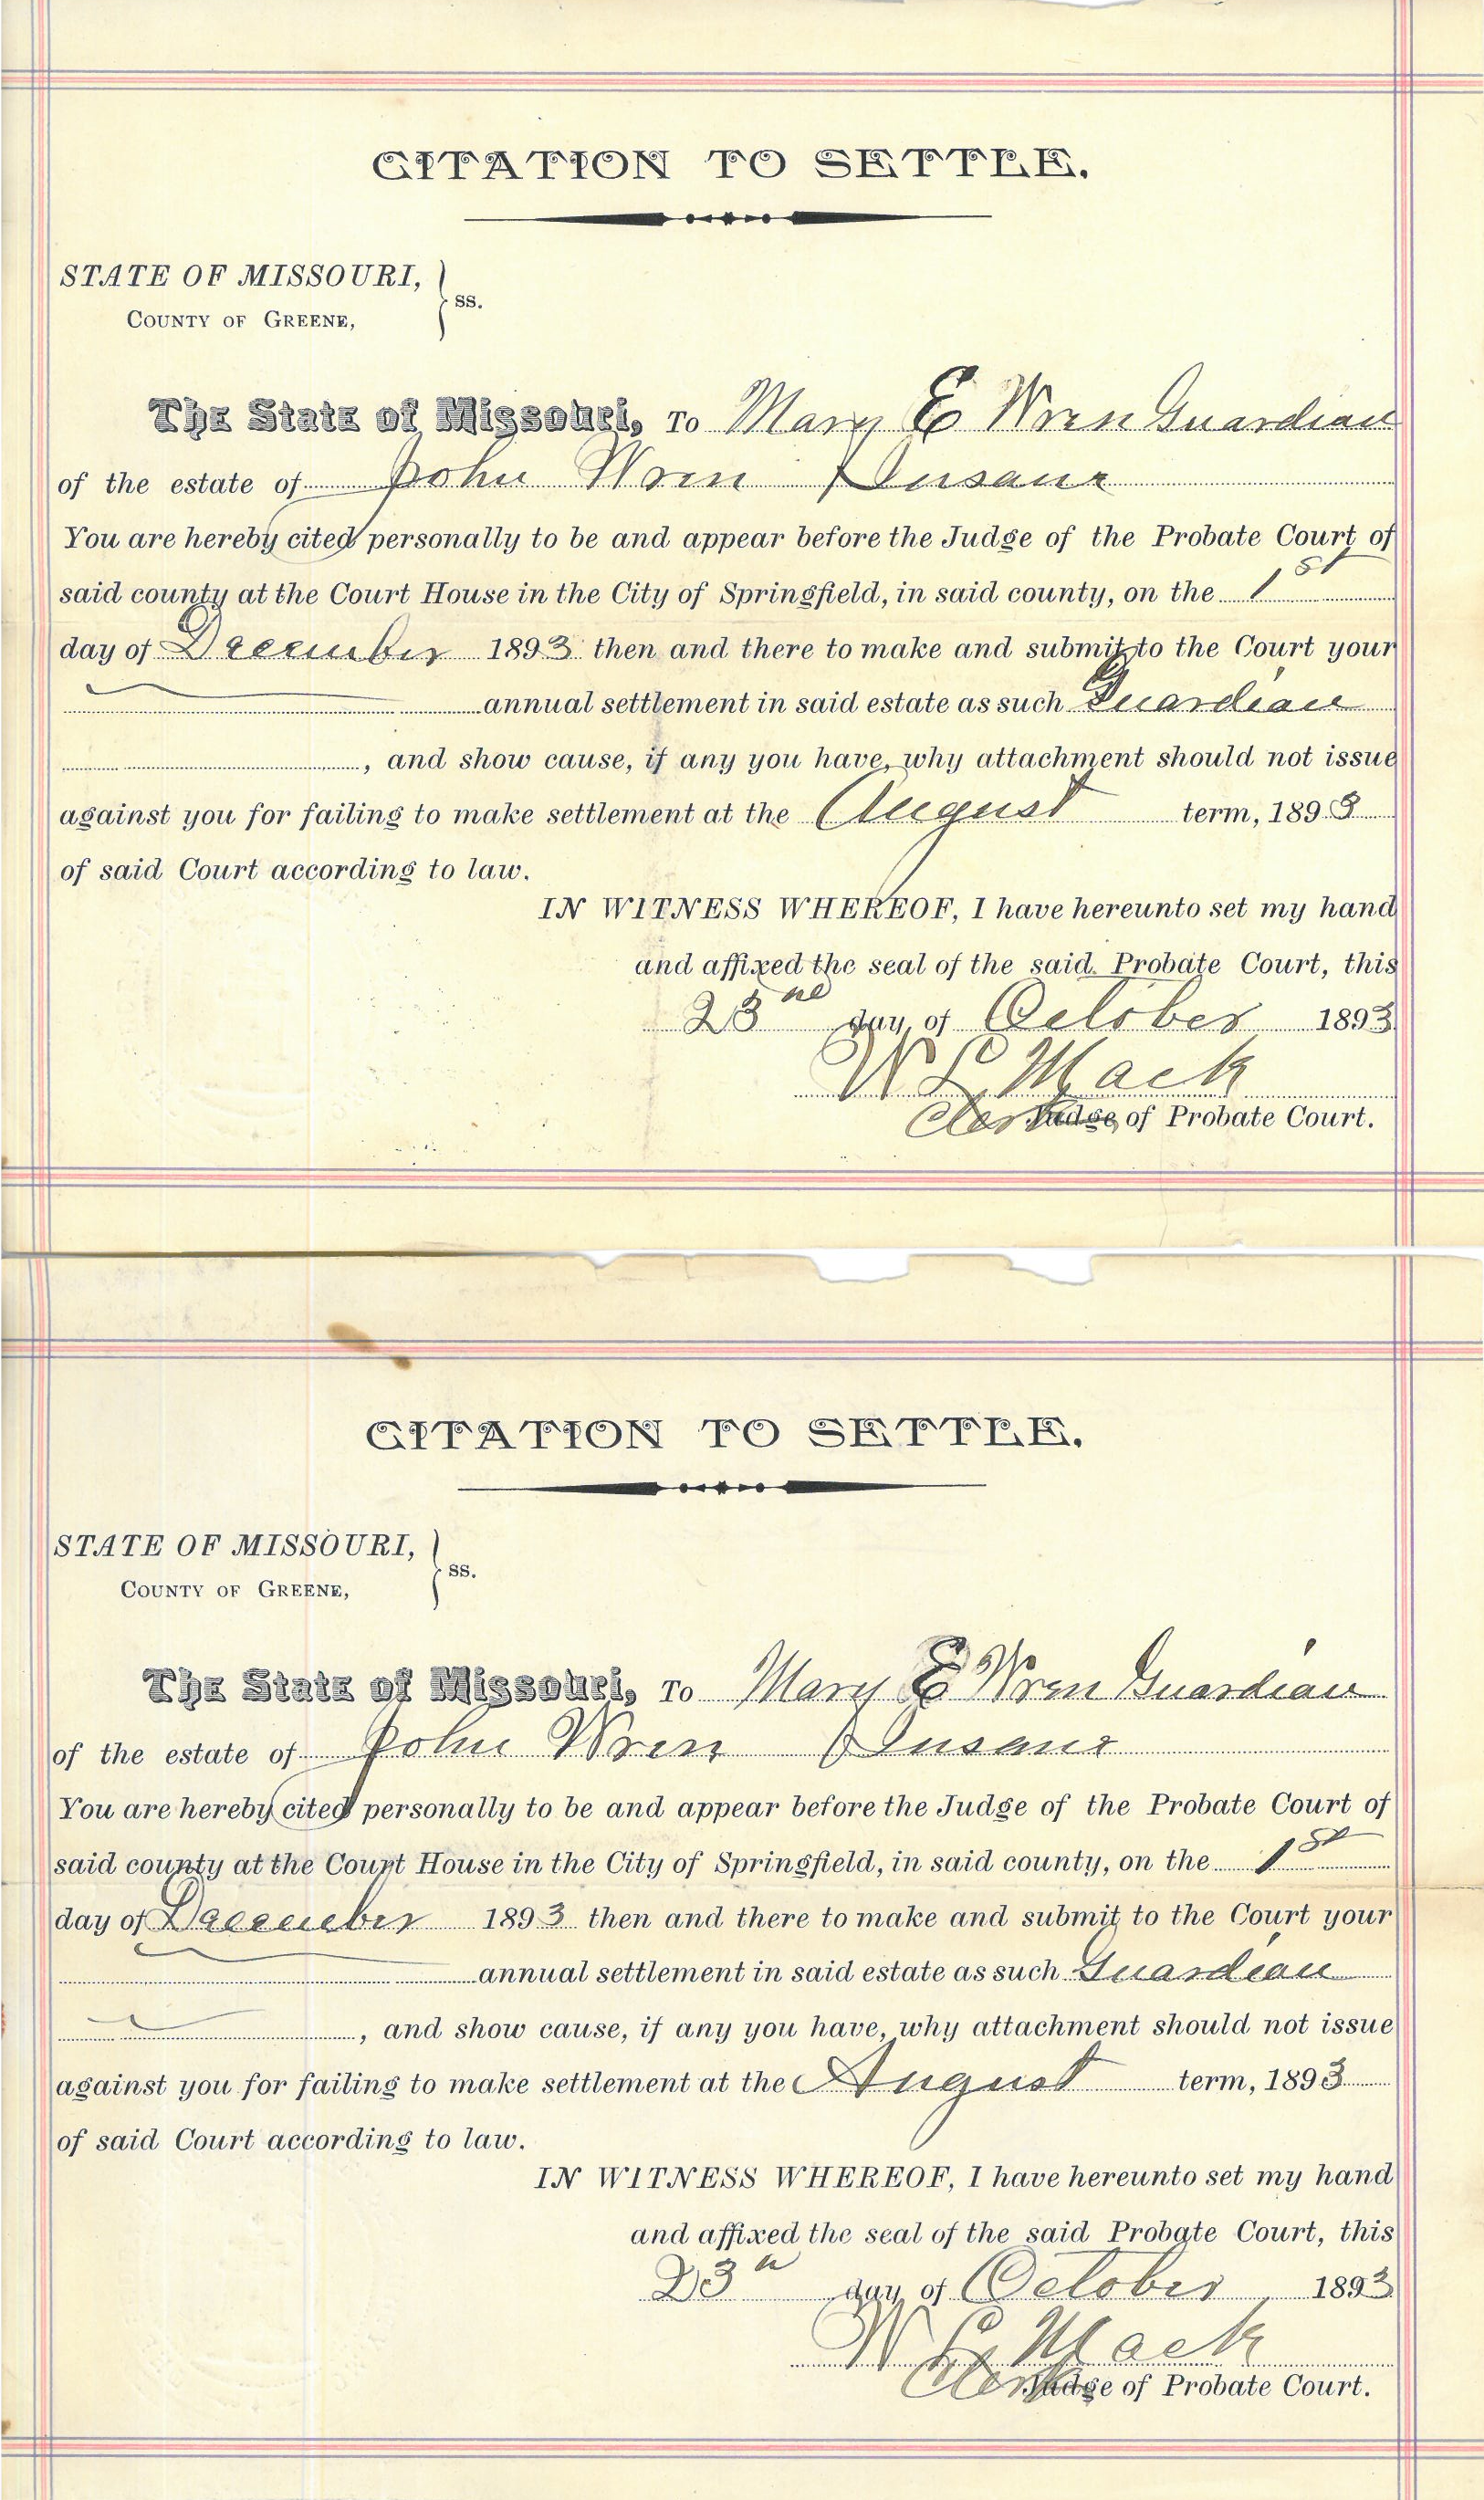 CITATION TO SETTLE.
STATE OF MISSOURI,
COUNTY OF GREENE,
ss.
The State of Missouri, To Mary E Wren Guardian
of the estate of John Wren Insane
You are hereby cited personally to be and appear before the Judge of the Probate Court of
said county at the Court House in the City of Springfield, in said county, on the 1st
day of December 1893 then and there to make and submit to the Court your
annual settlement in said estate as such Guardian
, and show cause, if any you have, why attachment should not issue
against you for failing to make settlement at the August term, 1893
of said Court according to law.
IN WITNESS WHEREOF, I have hereunto set my hand
and affixed the seal of the said Probate Court, this
23rd day of October 1893
W L Mack
Clerk Judge of Probate Court.
CITATION TO SETTLE.
STATE OF MISSOURI,
COUNTY OF GREENE,
ss.
The State of Missouri, To Mary E Wren Guardian
of the estate of John Wren Insane
You are hereby cited personally to be and appear before the Judge of the Probate Court of
said county at the Court House in the City of Springfield, in said county, on the 1st
day of December 1893 then and there to make and submit to the Court your
annual settlement in said estate as such Guardian
, and show cause, if any you have, why attachment should not issue
against you for failing to make settlement at the August term, 1893
of said Court according to law.
IN WITNESS WHEREOF, I have hereunto set my hand
and affixed the seal of the said Probate Court, this
23 day of October 1893
W L Mack
Clerk Judge of Probate Court.